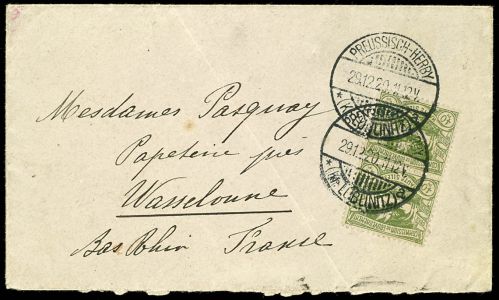 PREUSSISCH-HERBY
29.12.20.11-12V.
* (KR. LUBLINITZ) *
29.12.20.11-12V.
* (KR. LUBLINITZ) *
Mesdames Pasquay
Papeterie près
Wasselonne
Bas Rhin France